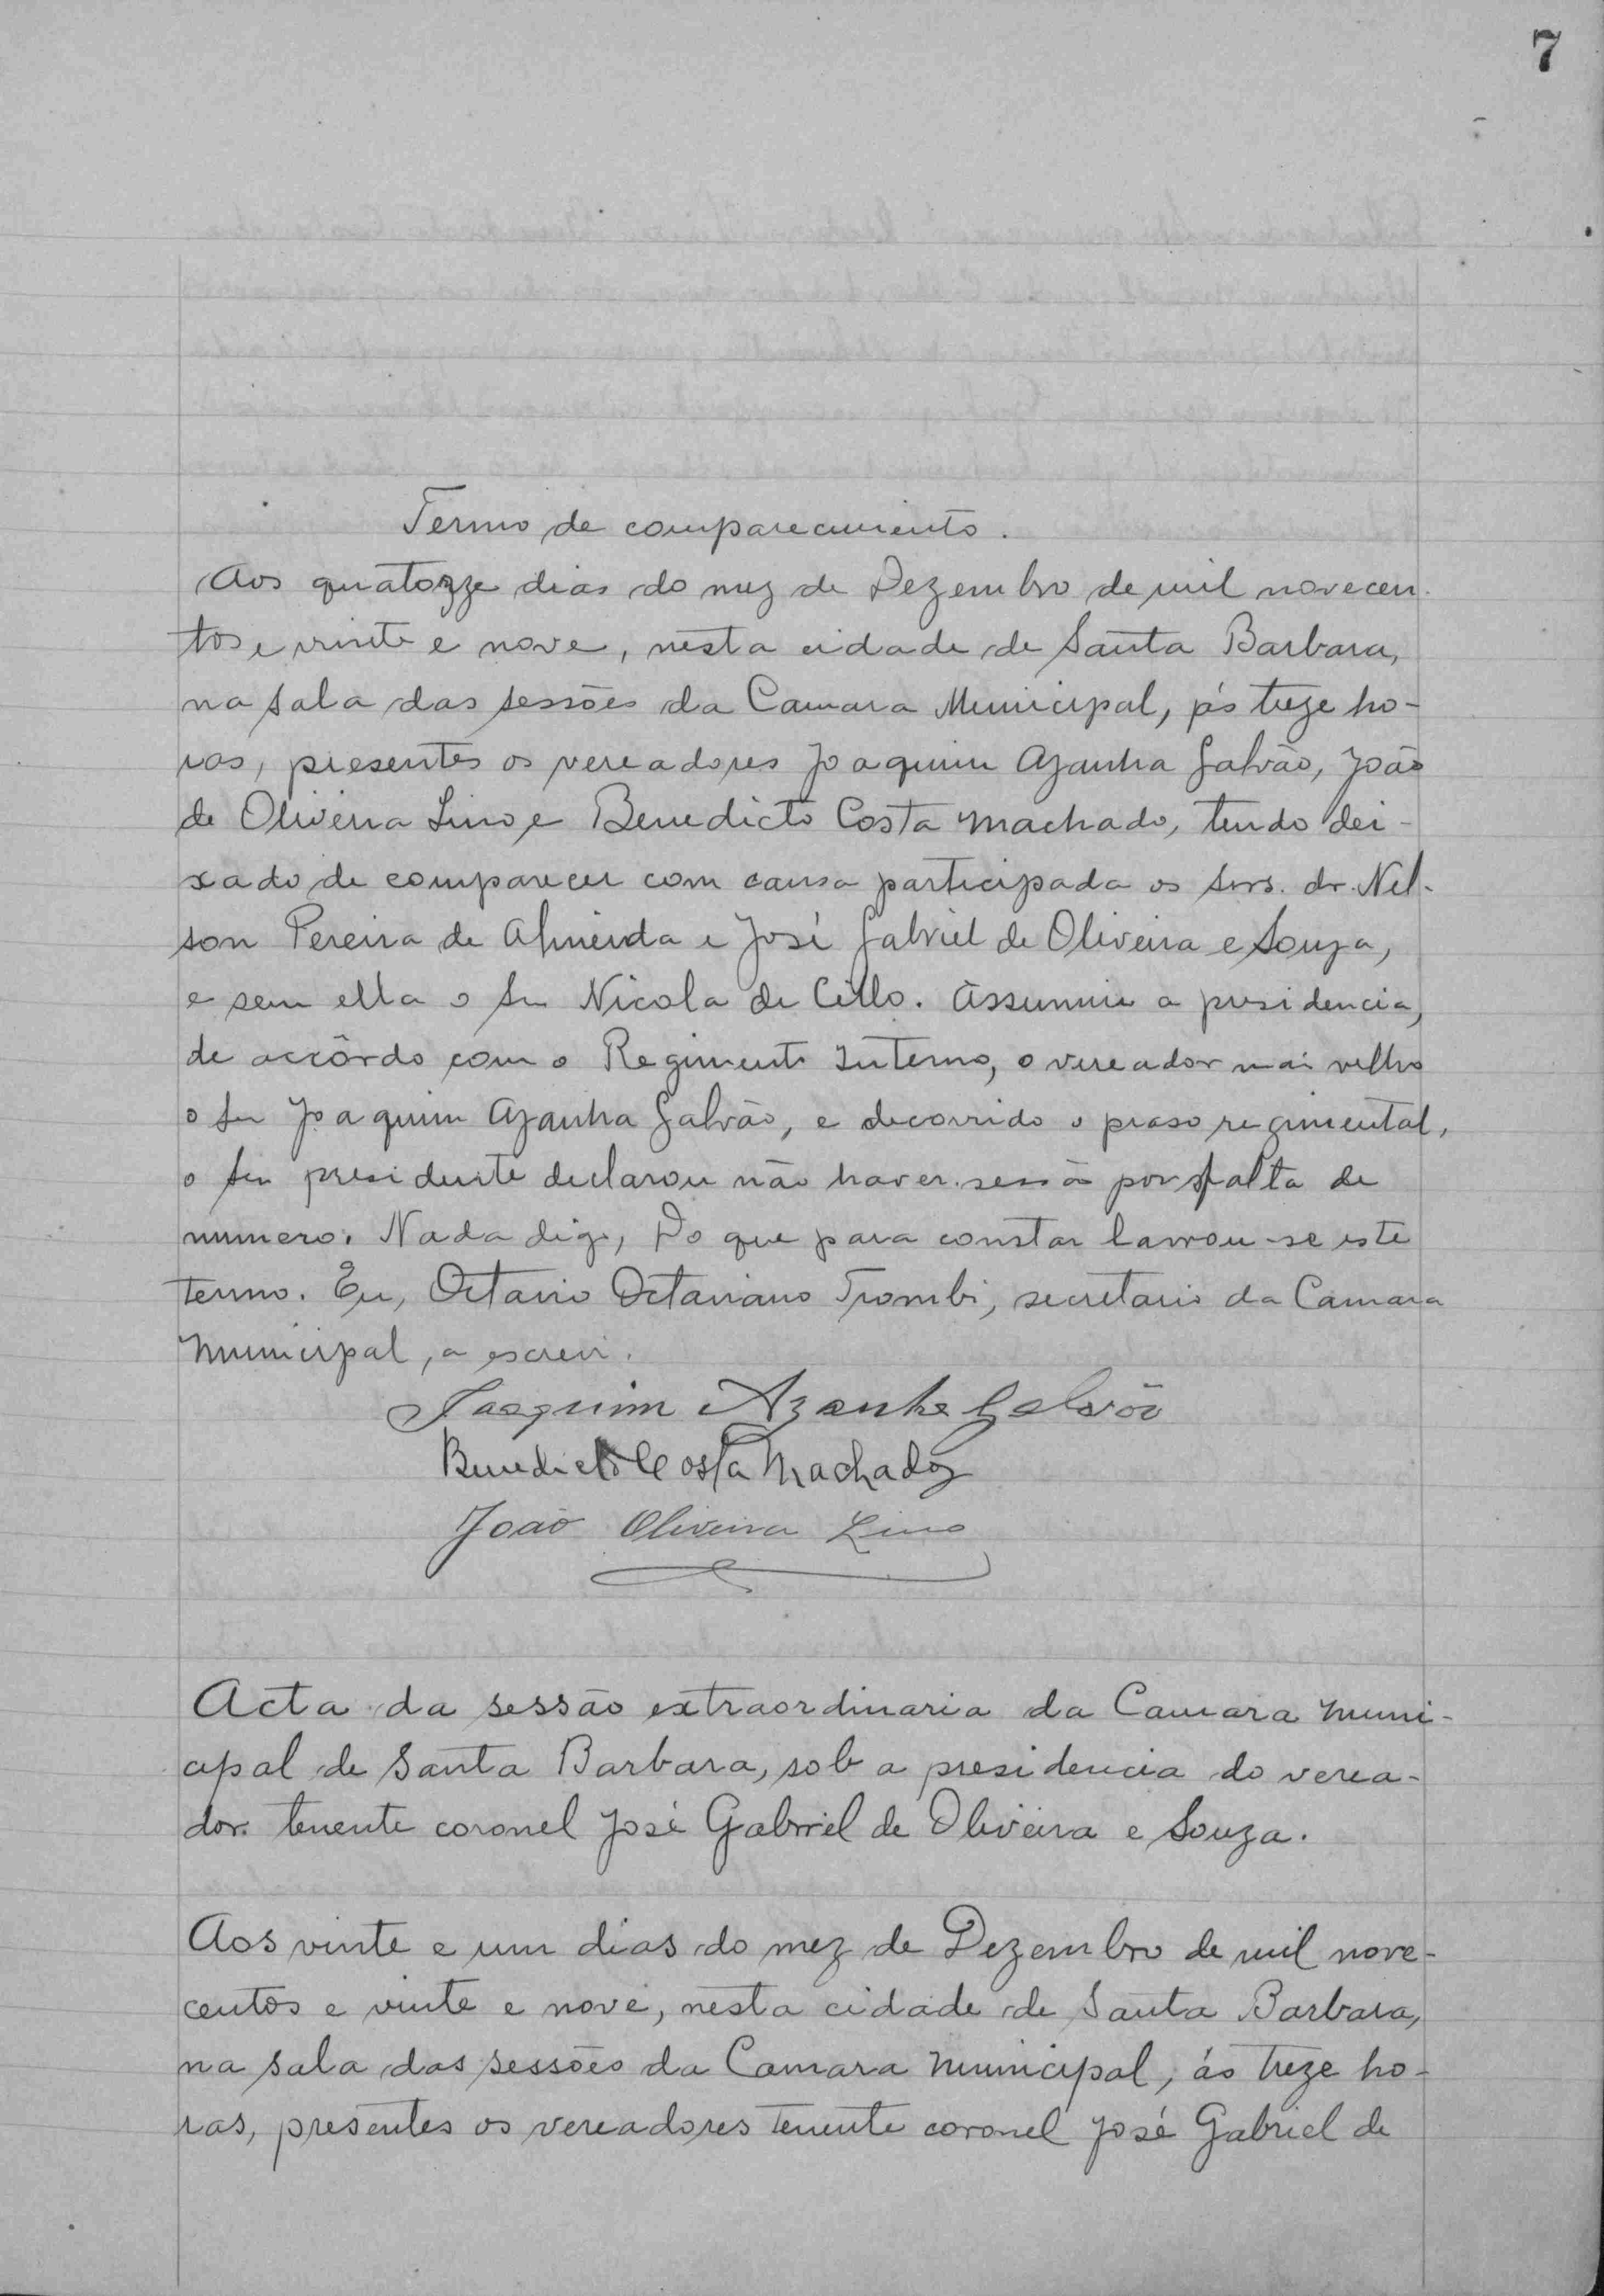 7
Termo de comparecimento.
Aos quatozze dias do mez de Dezembro de mil novecen-
tos e vinte e nove, nesta cidade de Santa Barbara,
na sala das sessões da Camara Municipal, ás treze ho-
ras, presentes os vereadores Joaquim Azanha Galvão, João
de Oliveira Lino e Benedicto Costa Machado, tendo dei-
xado de comparecer com causa participada os snrs. dr. Nel-
son Pereira de Almeida e José Gabriel de Oliveira e Souza,
e sem ella o snr Nicola de Cillo. Assumiu a presidencia,
de accôrdo com o Regimento Interno, o vereador mais velho
o snr Joaquim Azanha Galvão, e decorrido o praso regimental,
o snr presidente declarou não haver sessão por falta de
numero. Nada digo, Do que para constar lavrou-se este
termo. Eu, Octavio Octaviano Trombi, secretario da Camara
Municipal, a escrevi.
Joaquim Azanha Galvão
Benedicto Costa Machado
João Oliveira Lino
Acta da sessão extraordinaria da Camara Muni-
cipal de Santa Barbara, sob a presidencia do verea-
dor tenente coronel José Gabriel de Oliveira e Souza.
Aos vinte e um dias do mez de Dezembro de mil nove-
centos e vinte e nove, nesta cidade de Santa Barbara,
na sala das sessões da Camara Municipal, ás treze ho-
ras, presentes os vereadores tenente coronel José Gabriel de